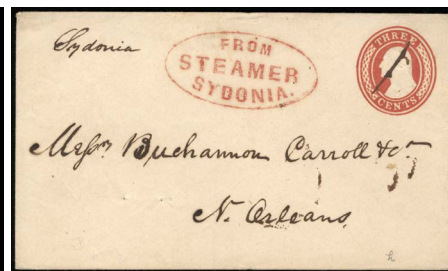 Sydonia
FROM
STEAMER
SYDONIA.
THREE
CENTS
Messrs Buchannon Carroll & Co
N. Orleans,